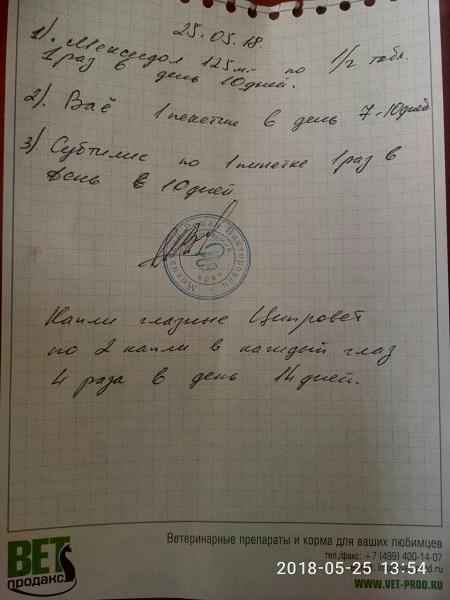 25.05.18.
1). Мексидол 125мг по 1/2 табл.
1 раз в день 10 дней.
2). Ваё 1 пакетик в день 7-10 дней
3). Субтилис по 1 пипетке 1 раз в
день в 10 дней.
Роман Викторович
врач
Капли глазные Ципровет
по 2 капли в каждый глаз
4 раза в день 14 дней.
Ветеринарные препараты и корма для ваших любимцев
ВЕТ
продакс
тел./факс: +7 (499) 400-14-07
2018-05-25 13:54
WWW.VET-PROD.RU